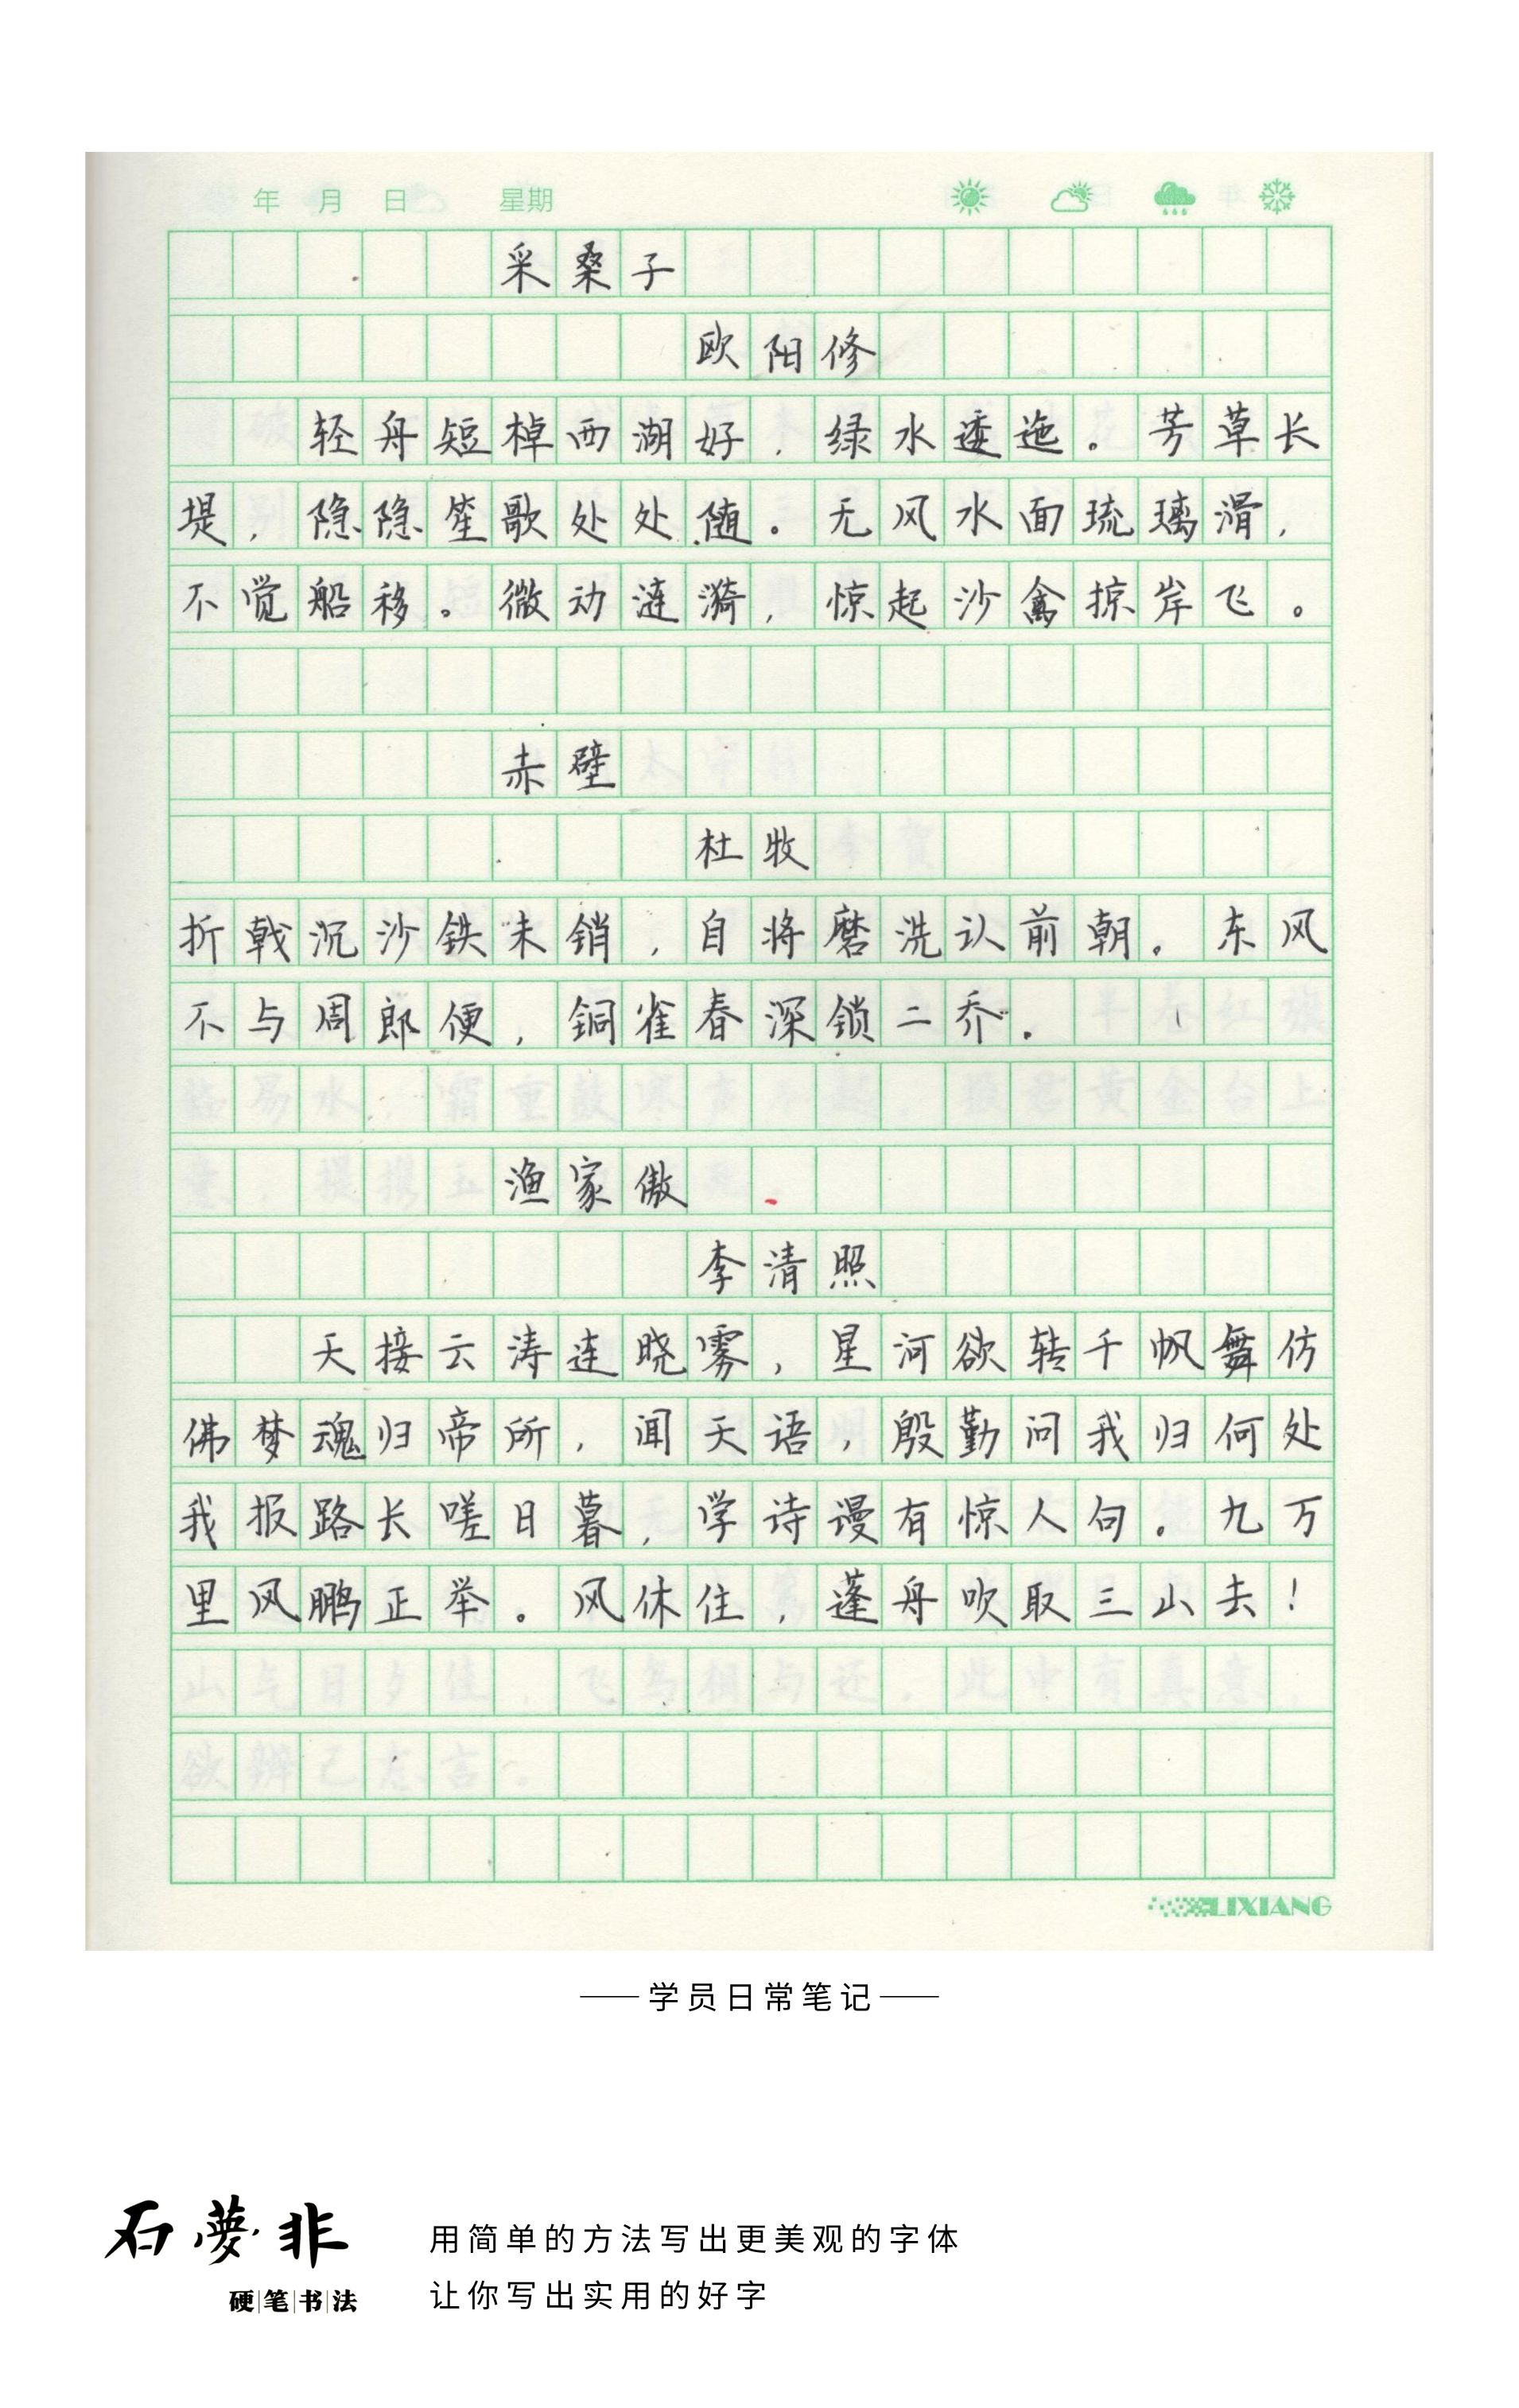 年 月 日 星期
采桑子
欧阳修
轻舟短棹西湖好，绿水逶迤。芳草长
堤，隐隐笙歌处处随。无风水面琉璃滑，
不觉船移。微动涟漪，惊起沙禽掠岸飞。
赤壁
杜牧
折戟沉沙铁未销，自将磨洗认前朝。东风
不与周郎便，铜雀春深锁二乔。
渔家傲
李清照
天接云涛连晓雾，星河欲转千帆舞仿
佛梦魂归帝所，闻天语，殷勤问我归何处
我报路长嗟日暮，学诗谩有惊人句。九万
里风鹏正举。风休住，蓬舟吹取三山去！
LIXIANG
学员日常笔记
石夢非
硬笔书法
用简单的方法写出更美观的字体
让你写出实用的好字